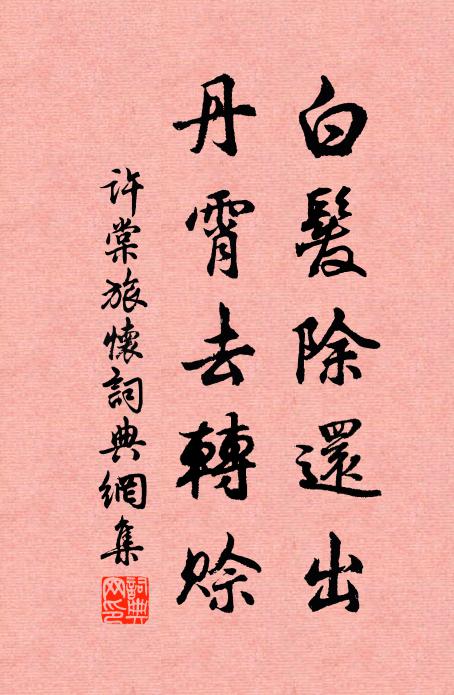 白髮除還出
丹霄去轉賒
許棠旅懷詞典網集
詞典網印